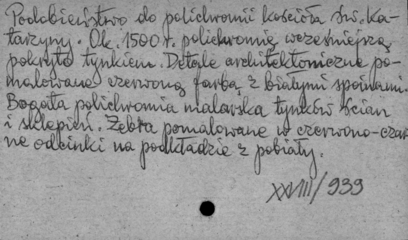 Podobieństwo do polichromii kościoła św. Ka-
tarzyny. Ok. 1500 r. polichromię wcześniejszą
pokryto tynkiem. Detale architektoniczne po-
malowane czerwoną farbą z białymi spoinami.
Bogata polichromia malarska tynków ścian
i sklepień. Żebra pomalowane w czerwono-czar
ne odcinki na podkładzie z pobiały.
XXVIII/939